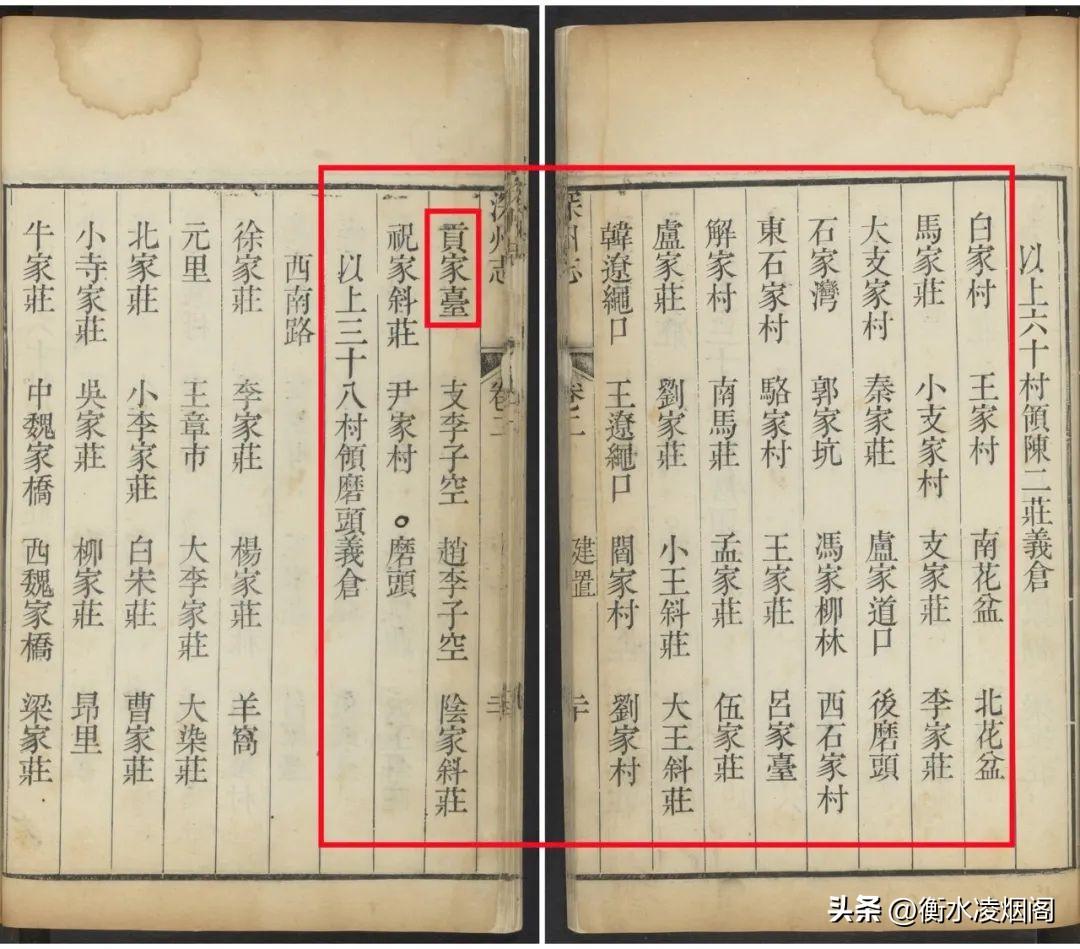 以上六十村領陳二莊義倉
白家村 王家村 南花盆 北花盆
馬家莊 小支家村 支家莊 李家莊
大支家村 秦家莊 盧家道口 後磨頭
石家灣 郭家坑 馮家柳林 西石家村
東石家村 駱家村 王家莊 呂家臺
解家村 南馬莊 孟家莊 伍家莊
盧家莊 劉家莊 小王斜莊 大王斜莊
韓遼繩口 王遼繩口 閻家村 劉家村
深州志 卷二 建置
深州志 卷二
貢家臺 支李子空 趙李子空 陰家斜莊
祝家斜莊 尹家村 。磨頭
以上三十八村領磨頭義倉
西南路
徐家莊 李家莊 楊家莊 羊窩
元里 王章市 大李家莊 大染莊
北家莊 小李家莊 白宋莊 曹家莊
小寺家莊 吳家莊 柳家莊 昻里
牛家莊 中魏家橋 西魏家橋 梁家莊
头条 @衡水凌烟阁